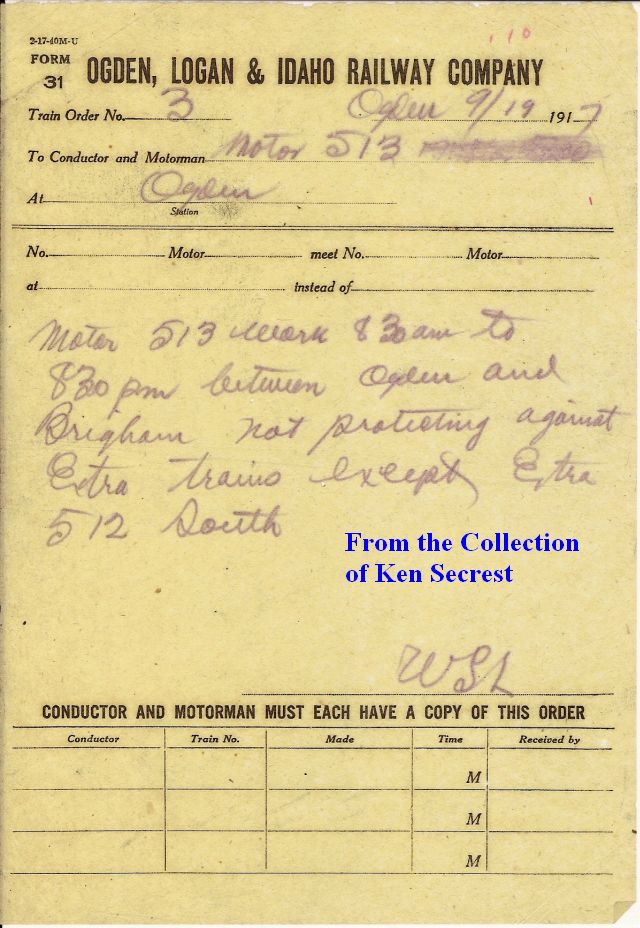 2-17-40M-U
FORM
31
OGDEN, LOGAN & IDAHO RAILWAY COMPANY
Train Order No. 3 Ogden 9/19 1917
To Conductor and Motorman Motor 513
At Ogden
Station
No. Motor meet No. Motor
at instead of
Motor 513 work 830 am to
830 pm between Ogden and
Brigham not protecting against
Extra trains except Extra
512 South
From the Collection
of Ken Secrest
WSL
CONDUCTOR AND MOTORMAN MUST EACH HAVE A COPY OF THIS ORDER
Conductor Train No. Made Time Received by
M
M
M